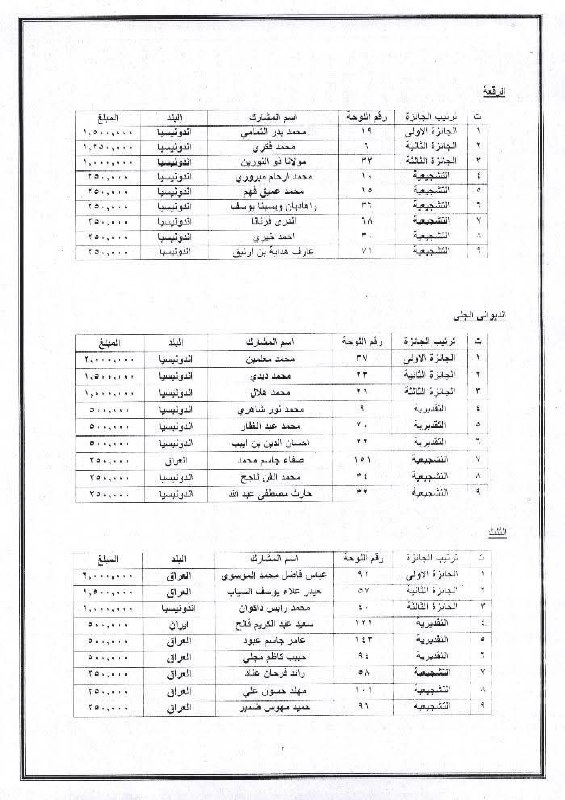 الرقعة
ت ترتيب الجائزة رقم اللوحة اسم المشارك البلد المبلغ
١ الجائزة الاولى ١٩ محمد بدر التمامي اندونيسيا ١,٥٠٠,٠٠٠
٢ الجائزة الثانية ٦ محمد فكري اندونيسيا ١,٢٥٠,٠٠٠
٣ الجائزة الثالثة ٣٣ مولانا ذو النورين اندونيسيا ١,٠٠٠,٠٠٠
٤ التشجيعية ١٠ محمد ارحام ميروري اندونيسيا ٢٥٠,٠٠٠
٥ التشجيعية ١٥ محمد عميق فهم اندونيسيا ٢٥٠,٠٠٠
٦ التشجيعية ٣٦ ويبسينا يوسف اندونيسيا ٢٥٠,٠٠٠
٧ التشجيعية ٦٨ اندري فرناتا اندونيسيا ٢٥٠,٠٠٠
٨ التشجيعية ٣٠ احمد خيري اندونيسيا ٢٥٠,٠٠٠
٩ التشجيعية ٧١ عارف هداية بن ارتيق اندونيسيا ٢٥٠,٠٠٠
الديواني الجلي
ت ترتيب الجائزة رقم اللوحة اسم المشارك البلد المبلغ
١ الجائزة الاولى ٣٧ محمد معلمين اندونيسيا ٢,٠٠٠,٠٠٠
٢ الجائزة الثانية ٢٣ محمد ديدي اندونيسيا ١,٥٠٠,٠٠٠
٣ الجائزة الثالثة ٢٦ محمد هلال اندونيسيا ١,٠٠٠,٠٠٠
٤ التقديرية ٩ محمد نور شاهري اندونيسيا ٥٠٠,٠٠٠
٥ التقديرية ٢٠ محمد عبد الغفار اندونيسيا ٥٠٠,٠٠٠
٦ التقديرية ٢٢ احسان الدين بن ابيب اندونيسيا ٥٠٠,٠٠٠
٧ التشجيعية ١٥١ صفاء جاسم محمد العراق ٢٥٠,٠٠٠
٨ التشجيعية ٣٤ محمد الفن ناجح اندونيسيا ٢٥٠,٠٠٠
٩ التشجيعية ٣٢ حارث مصطفى عبد الله اندونيسيا ٢٥٠,٠٠٠
الثلث
ت ترتيب الجائزة رقم اللوحة اسم المشارك البلد المبلغ
١ الجائزة الاولى ٩٢ عباس فاضل محمد الموسوي العراق ٢,٠٠٠,٠٠٠
٢ الجائزة الثانية ٥٧ حيدر علاء يوسف السياب العراق ١,٥٠٠,٠٠٠
٣ الجائزة الثالثة ٤٠ محمد رايس داكوان اندونيسيا ١,٠٠٠,٠٠٠
٤ التقديرية ١٢١ سعيد عبد الكريم فاتح ايران ٥٠٠,٠٠٠
٥ التقديرية ١٤٣ عامر جاسم عبود العراق ٥٠٠,٠٠٠
٦ التقديرية ٩٤ حبيب كاظم مجلي العراق ٥٠٠,٠٠٠
٧ التشجيعية ٥٨ رائد فرحان عناد العراق ٢٥٠,٠٠٠
٨ التشجيعية ١٠١ مهند حسون علي العراق ٢٥٠,٠٠٠
٩ التشجيعية ٩٦ حميد مهوس ضمير العراق ٢٥٠,٠٠٠